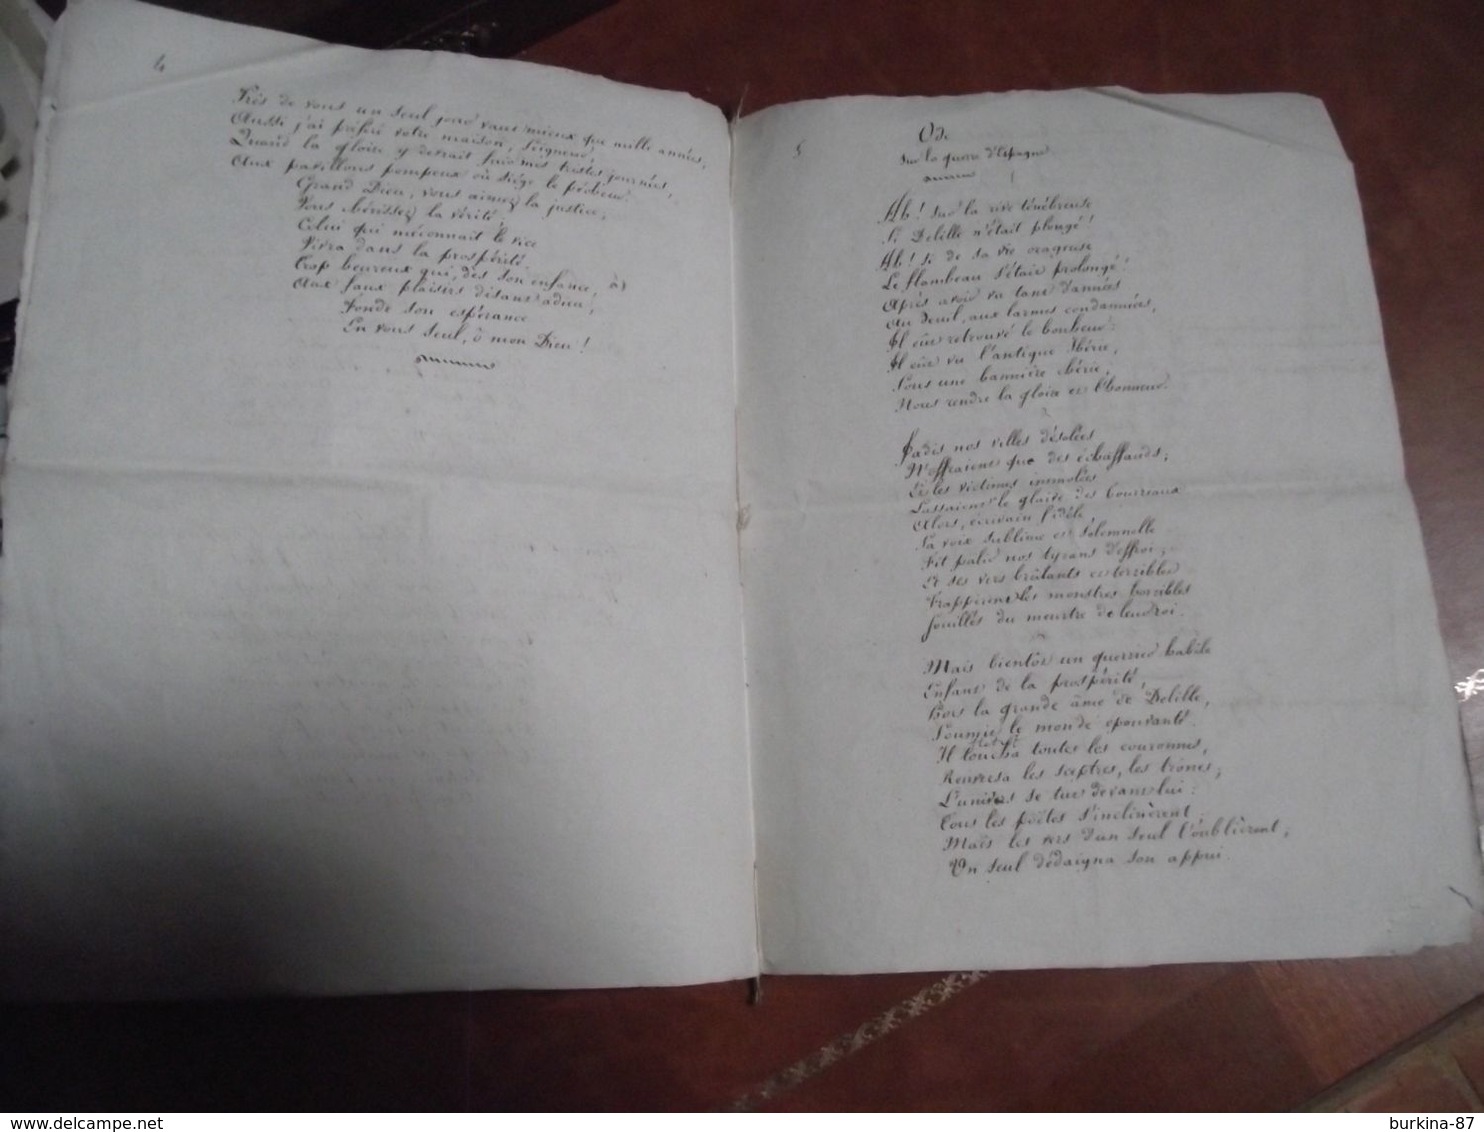 4
Près de vous un seul jour vaut mieux que mille années,
Aussi j'ai préféré votre maison, Seigneur,
Quand la gloire y devrait fuir mes tristes journées,
Aux pavillons pompeux où siége le pécheur.
Grand Dieu, vous aimez la justice,
Vous chérissez la vérité:
Celui qui méconnait le vice
Vivra dans la prospérité.
Trop heureux qui, dès son enfance,
Aux faux plaisirs disant adieu,
Fonde son espérance
En vous seul, ô mon Dieu!
5
Ode
Sur la guerre d'Espagne
Ah! sur la rive ténébreuse
Si Delille n'était plongé!
Ah! si de sa vie orageuse
Le flambeau s'était prolongé!
Après avoir vu tant d'années
Au deuil, aux larmes condamnées,
Il eût retrouvé le bonheur:
Il eût vu l'antique Ibérie,
Sous une bannière chérie,
Nous rendre la gloire et l'honneur.
Jadis nos villes désolées
N'offraient que des échaffauds;
Et les victimes immolées
Lassaient le glaive des bourreaux
Alors, écrivain fidèle,
Sa voix sublime et solemnelle
Fit palir nos tyrans d'effroi;
Et ses vers brûlants et terribles
Frappèrent les monstres horribles
Souillés du meurtre de leur roi.
Mais bientôt un guerrier habile
Enfant de la prospérité,
Hors la grande âme de Delille,
Soumit le monde épouvanté.
Il toucha toutes les couronnes,
Renversa les sceptres, les trônes;
L'univers se tut devant lui:
Tous les poëtes s'inclinèrent;
Mais les vers d'un seul l'oublièrent;
Un seul dédaigna son appui.
burkina-87